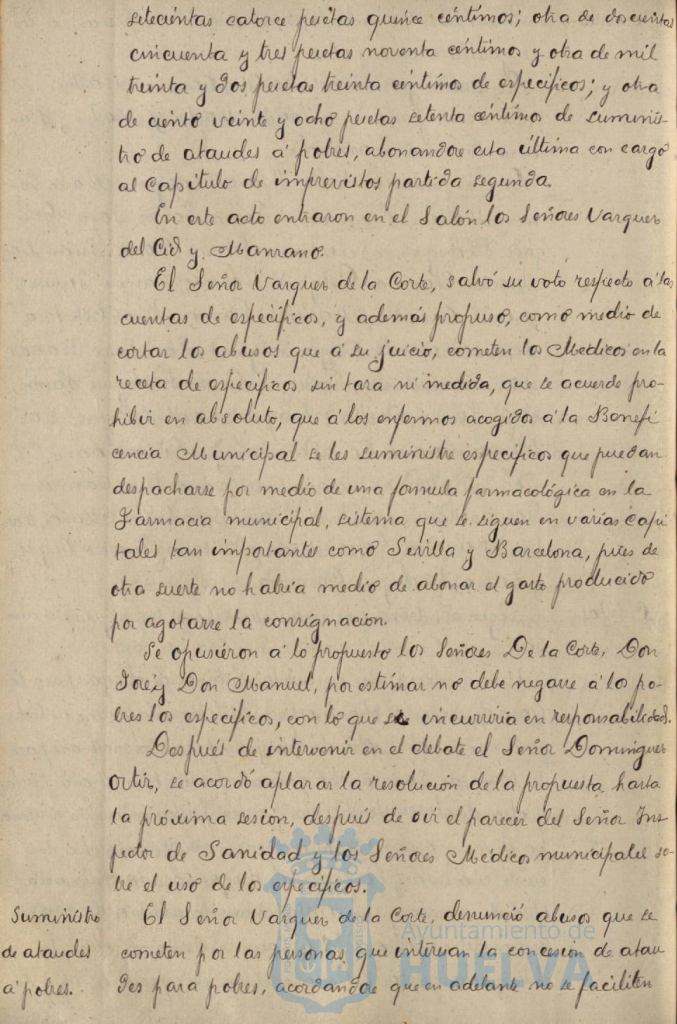 setecientas catorce pesetas quince céntimos; otra de doscientas
cincuenta y tres pesetas noventa céntimos y otra de mil
treinta y dos pesetas treinta céntimos de especificos; y otra
de ciento veinte y ocho pesetas setenta céntimos de suminis-
tro de ataudes á pobres, abonandose esta última con cargo
al Capitulo de imprevistos partida segunda.
En este acto entraron en el Salón los Señores Vazquez
del Cid y Manzano.
El Señor Vazquez de la Corte, salvó su voto respecto á las
cuentas de especificos, y además propuso, como medio de
cortar los abusos que á su juicio, cometen los Médicos en la
receta de especificos sin tasa ni medida, que se acuerde pro-
hibir en absoluto, que á los enfermos acogidos á la Benefi
cencia Municipal se les suministre especificos que puedan
despacharse por medio de una formula farmacológica en la
Farmacia municipal, sistema que se siguen en varias Capi
tales tan importantes como Sevilla y Barcelona, pues de
otra suerte no habria medio de abonar el gasto producido
por agotarse la consignación.
Se opusieron á lo propuesto los Señores De la Corte, Don
José y Don Manuel, por estimar no debe negarse á los po-
bres los especificos, con lo que se incurriria en responsabilidad.
Después de intervenir en el debate el Señor Dominguez
Ortiz, se acordó aplazar la resolución de la propuesta hasta
la próxima sesion, después de oir el parecer del Señor Ins-
pector de Sanidad y los Señores Médicos municipales so-
bre el uso de los especificos.
Suministro
de ataudes
á pobres.
El Señor Vazquez de la Corte, denunció abusos que se
cometen por las personas que interesan la concesion de atau
des para pobres, acordandose que en adelante no se faciliten
Ayuntamiento de
HUELVA